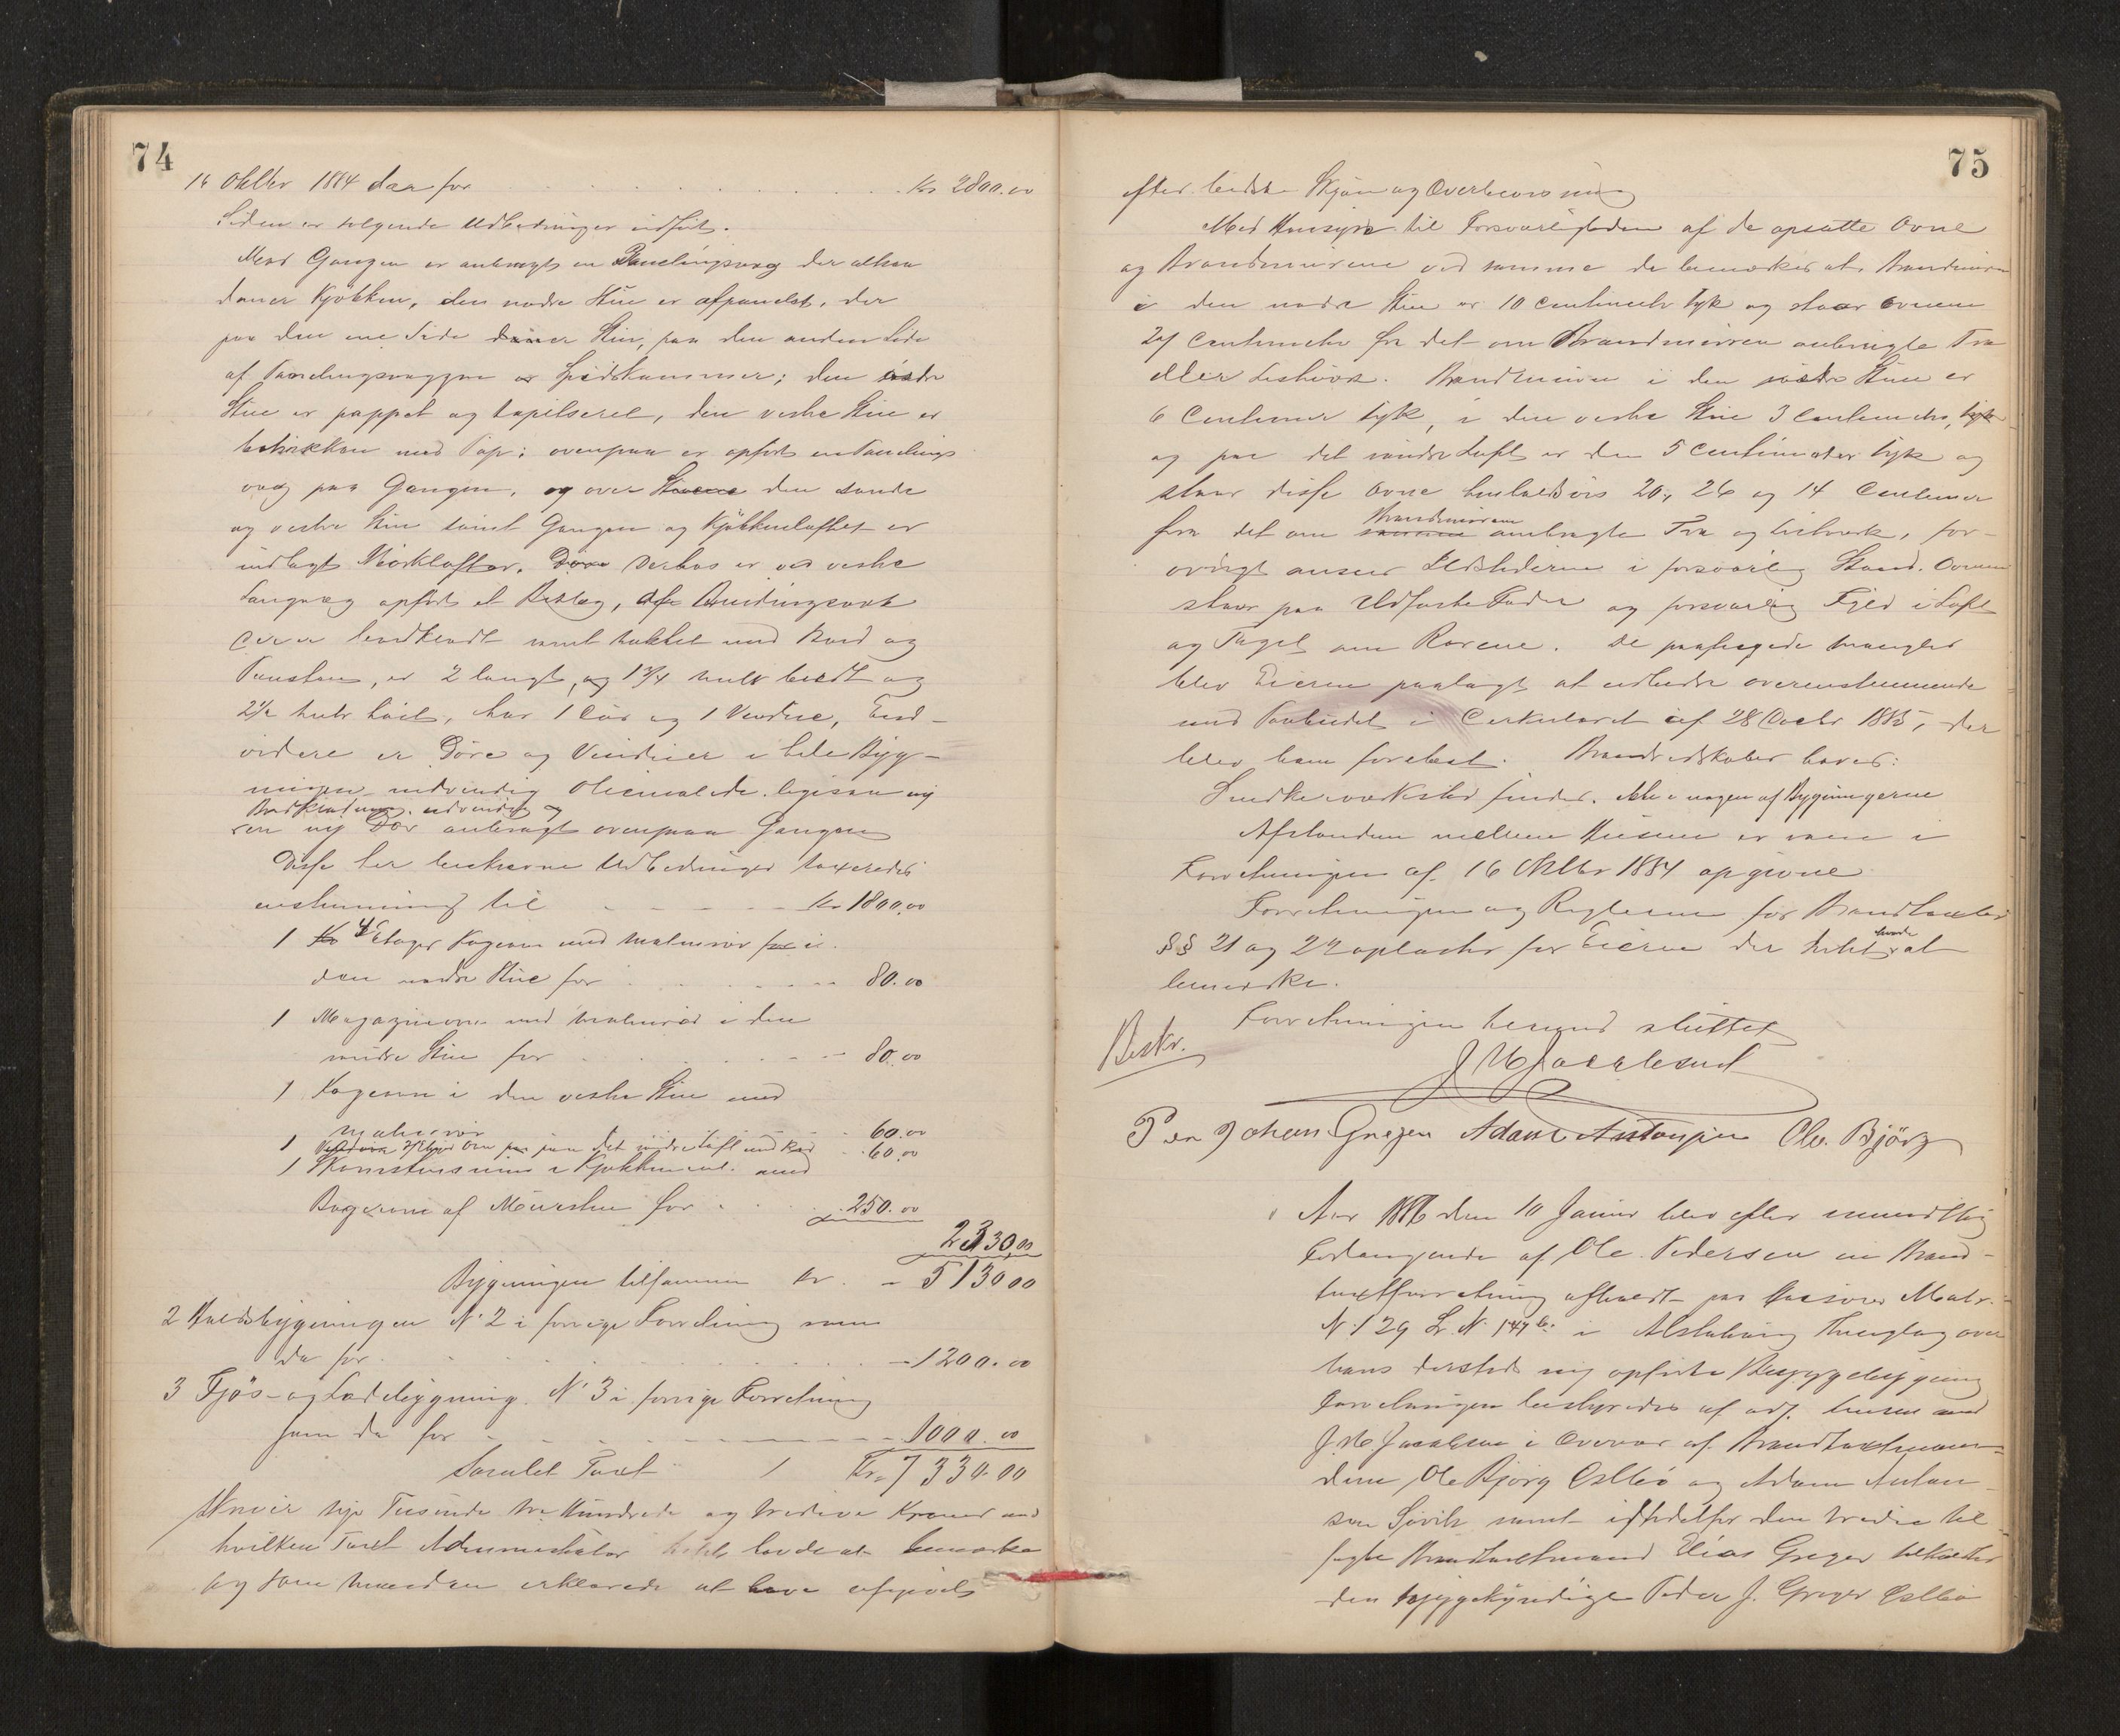 74
16 Oktbr 1884 da for . . . . . . . . . Kr 2800.00
Siden er følgende Udbedringer udført.
Mod Gangen er anbragt en Panelingsvæg der altsaa
daner Kjökken, den nedre Stue er afpanelet, der
paa den ene Side daner Stue, paa den anden Side
af Panelingsvæggen er Spidskammer; den
Stue er pappet og tapitseret, den vestre Stue er
betrækken med Pap; ovenpaa er opført en Panelings
væg paa Gangen, og over Stuene den søndre
og vestre Stue samt Gangen og Kjökkenloftet er
indlagt Mörklofter. Döre Derhos er ved vestre
Langvæg opført et Bislag, af Bindingsværk
bordklædt samt tækket med Bord og
er 2 langt, og 1¾ meter bredt og
2½ metr höit, har 1 Dör og 1 Vindue, End-
videre er Döre og Vinduer i hele Byg-
ningen indvendig Oliemalede ligesaa ny
Bordklædning udvendig og
en ny Dör anbragt ovenpaa Gangen
Disse her beskrevne Udbedringer taxeredes
enstemmig til - - - - Kr 1800.00
1 4 Etages Kogeovn med Malmrör i
den nedre Stue for . . . . 80.00
1 Magazinovn med Malmrör i den
søndre Stue for . . . . 80.00
1 Kogeovn i den vestre Stue med
Malmrör - 60.00
1 Etages Ovn paa det søndre Loft med Rör - 60.00
1 Skorstensmur i Kjökkenet med
Bagerovn af Mursten for . . 250.00
2330.00
Bygningen tilsammen Kr. - 5130.00
2 N. 2 i forrige Forretning som
da for . . . . . . . . . - 1200.00
3 Fjös- og Ladebygning N. 3 i forrige Forretning
som da for - - - - - 1000.00
Samlet Taxt Kr. 7330.00
Skriver syv Tusinde tre Hundrede og tredive Kroner mod
hvilken Taxt Administrator Intet havde at bemærke
og som Mændene erklærede at have afgivet
75
efter bedste Skjön og Overbevisning
Med Hensyn til Forsvarligheden af de opsatte Ovne
og Brandmurene ved samme da bemærkes at Brandmuren
i den nedre Stue er 10 Centimeter tyk og staar Ovnen
24 Centimeter fra det om Brandmuren anbragte Træ
eller Listværk. Brandmuren i den söndre Stue er
6 Centimer tyk, i den vestre Stue 3 Centimeter, tyk
og paa det söndre Loft er den 5 Centimeter tyk og
staar disse Ovne henholdsvis 20, 26 og 14 Centimer
Brandmurene
fra det om samme anbragte Træ og Listværk, for-
övrigt ansees Ildstederne i forsvarlig Stand. Ovnene
staar paa Ildfaste Fødder og forsvarlig Fjeld i Loft
og Taget om Rørene. De paapegede Mangler
blev Eieren paalagt at udbedre overensstemmende
med Paabudet i Cirkulæret af 28 Decbr 1885, der
blev ham forelæst. Brandredskaber haves:
Snedkerværksted findes ikke i nogen af Bygningerne
Afstanden mellem Husene er som i
Forretningen af 16 Oktbr 1884 opgivne
Forretningen og Reglerne for Brandtaxter
§§ 21 og 22 oplæstes for Eieren der Intet havde at
bemærke.
Forretningen hermed sluttet
Beskr.
J M Jacobsen
Peder Johan Greger Adam Antonsen Ole Bjørg
Aar 1886 den 10 Januar blev efter mundtlig
Forlangende af Ole Pedersen en Brand-
taxtforretning afholdt paa Matr.
N. 129 L. N. 147 b. i Alstahaug Thinglag over
hans dersteds ny opførte Vaaningsbygning
Forretningen bestyredes af
J. M. Jacobsen i Overvær af Brandtaxtmæn-
dene Ole Bjørg og Adam Anton-
sen Søvik samt istedetfor den tredie til-
sagte Brandtaxtmand Elias Greger tilkaldtes
den bygningskyndige Peder J. Greger